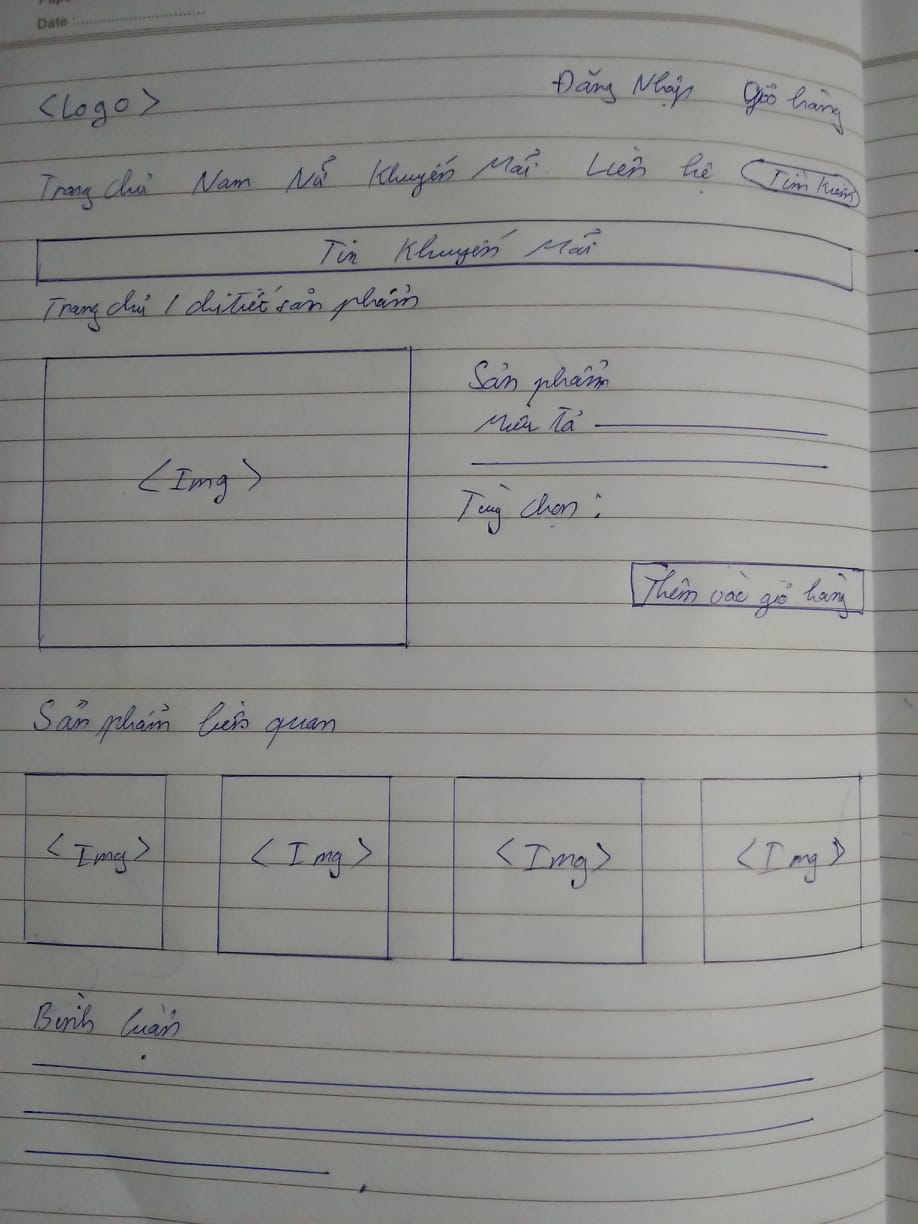 Date :
<Logo> Đăng Nhập giỏ hàng
Trang chủ Nam Nữ Khuyến Mãi Liên hệ Tìm kiếm
Tin Khuyến Mãi
Trang chủ / chi tiết sản phẩm
<Img>
Sản phẩm
Miêu Tả
Tùy chọn :
Thêm vào giỏ hàng
Sản phẩm liên quan
<Img> <Img> <Img> <Img>
Bình luận